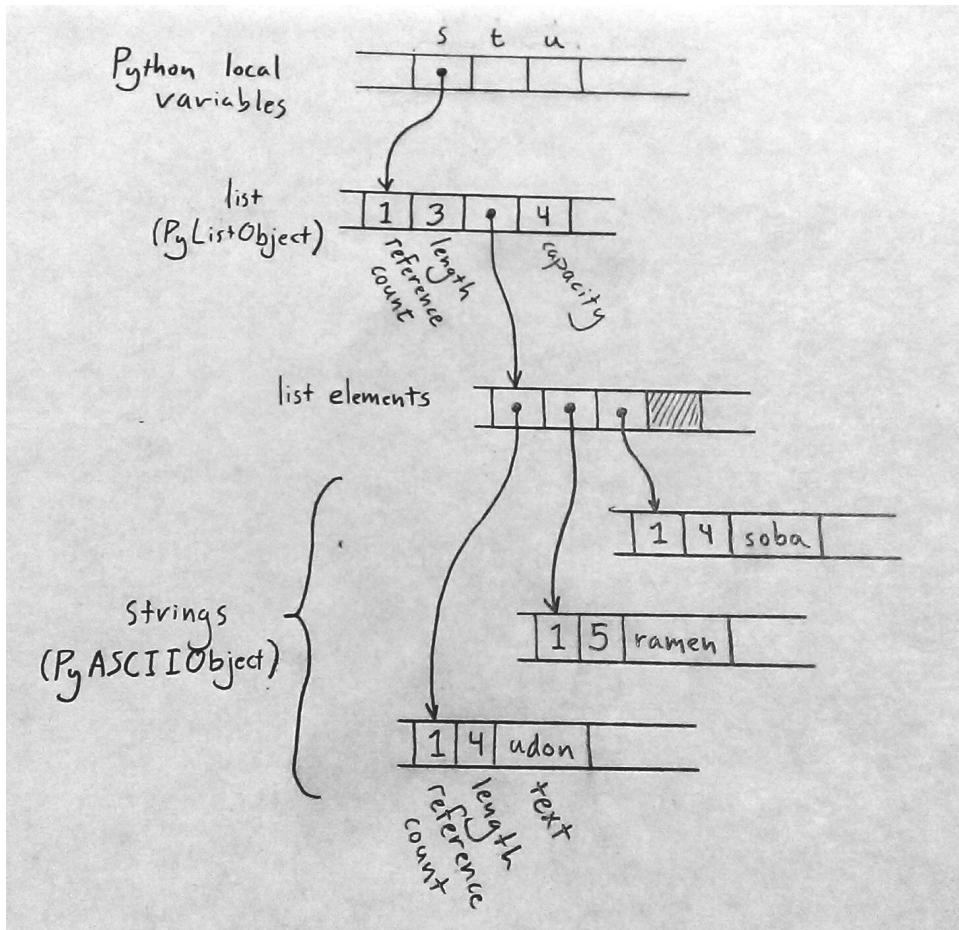 s t u
Python local
variables
list
(PyListObject)
1 3 4
reference
count
length
capacity
list elements
1 4 soba
Strings
(PyASCIIObject)
1 5 ramen
1 4 udon
reference
count
length
text